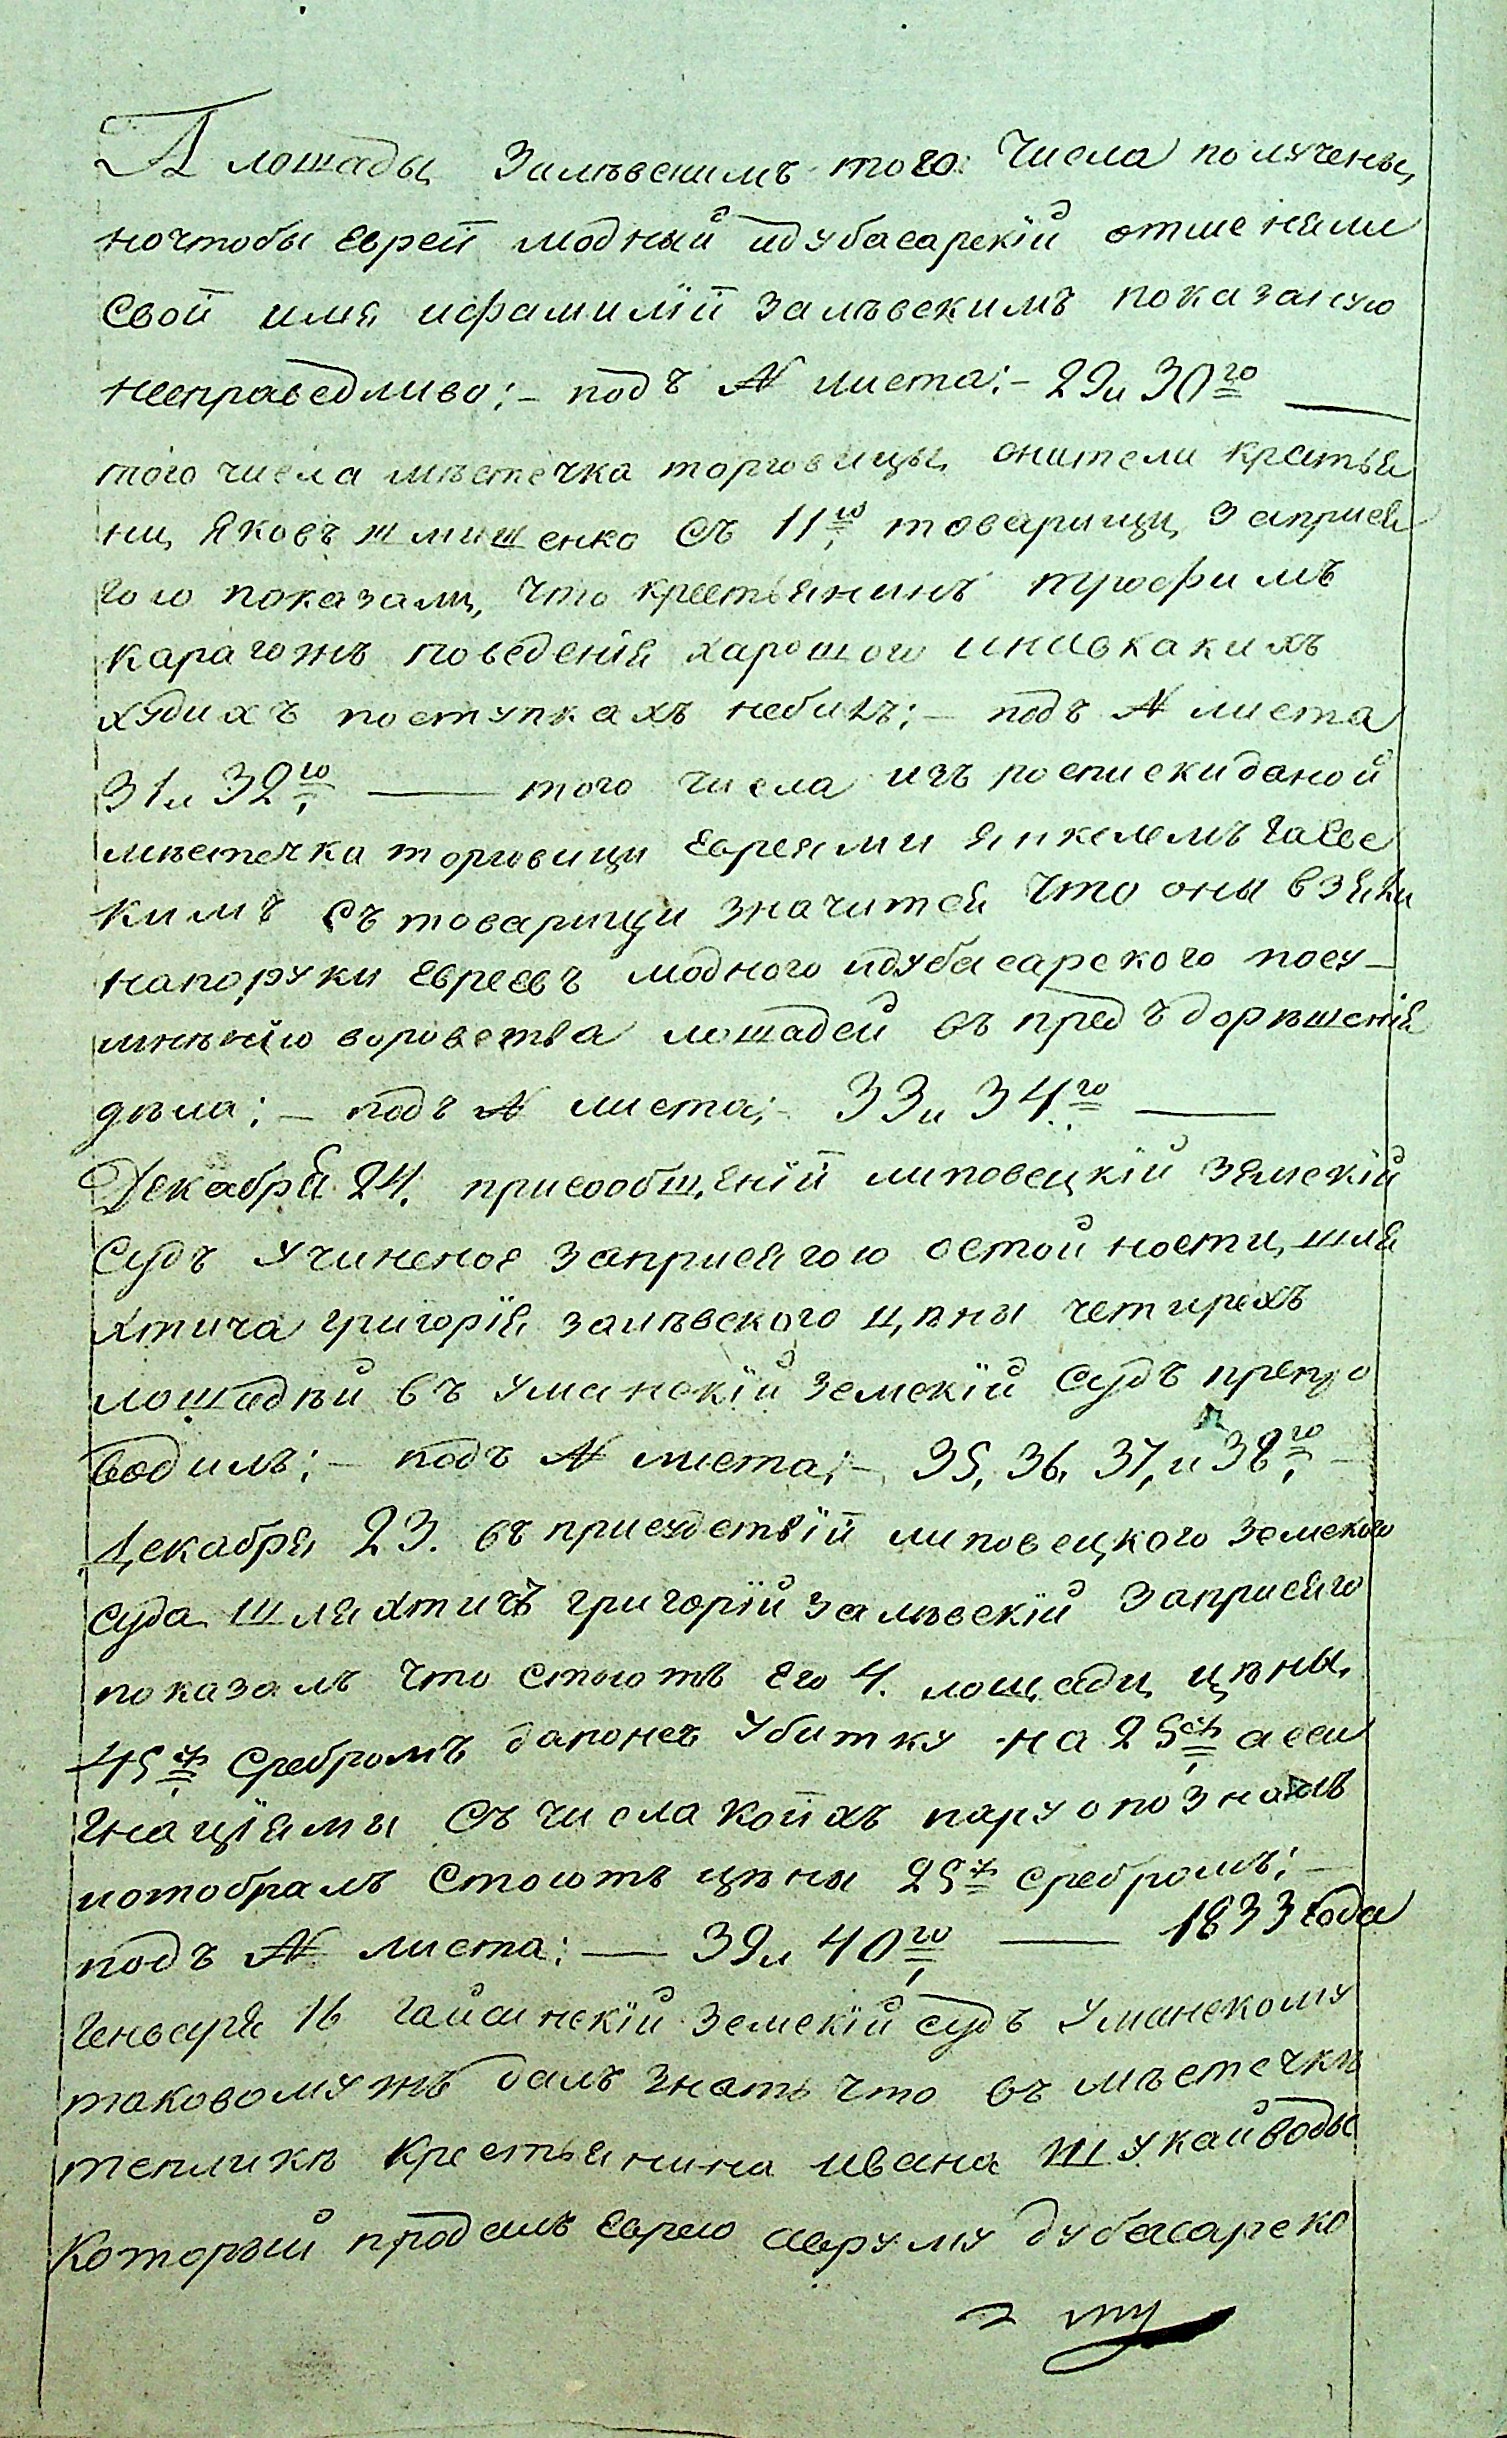 А лошады Залѣвскимъ того числа получены,
ночтобы еврей модный идубасарскій отменяли
свой имя ифамилїй залѣвскимъ показаную
несправедливо; – подъ № листа: – 29 и 30го —
того числа мѣстечка торговицы жители крестья
ни, Яковъ шмишенко съ 11го товарищи, заприся
гою показали, что крестьянинъ трофимъ
карагожъ поведенія харошого инивкакихъ
худихъ поступкахъ небилъ; – подъ № листа
31 и 32го — того числа изъ росписки даной
мѣстечка торговици евреями янкелемъ гаев
кимъ съ товарищи значится что оны взяли
напоруки евреевъ модного идубасарского посу –
мнѣнію воровства лошадей въ предъ дорѣшенія
дѣла; – подъ № листа; – 33 и 34го —
Декабря 24. присообщенїй липовецкій земскій
Судъ учиненое заприсягою остойности, шля
хтича григорїя залѣвского цѣны четирехъ
лошадѣй въ уманскїй земскїй судъ препро
водилъ; – подъ № листа; – 35, 36, 37, и 38го –
Декабря 23. въ присудствїй липовецкого земского
суда шляхтичъ григорїй залѣвскїй заприсяго
показалъ что стоютъ его 4. лошади, цѣны,
45 р сребромъ да понесъ убитку на 25 р асси
гнацїямы съ числа коихъ пару опозналъ
иотобралъ стоютъ цѣны 25 р сребромъ; –
подъ № листа: — 39 и 40го — 1833 года
Геньваря 16 гайсинскїй земскїй судъ уманскому
таковомужъ далъ знать что въ мѣстечкѣ
тепликѣ крестьянина ивана шукайводы
который продалъ еврею аврумy дубасарско
му